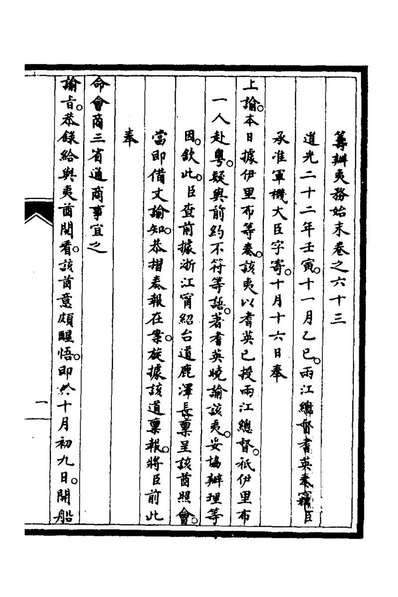 籌辦夷務始末卷之六十三
道光二十二年壬寅十一月乙巳。兩江總督耆英奏。竊臣
承准軍機大臣字寄。十月十六日奉
上諭。本日據伊里布等奏。該夷以耆英已授兩江總督。祇伊里布
一人赴粵。疑與前約不符等語。著耆英曉諭該夷。妥協辦理等
因。欽此。臣查前據浙江甯紹台道鹿澤長稟呈該酋照會。
當即備文諭知。恭摺奏報在案。旋據該道稟報。將臣前此
奉
命會商三省通商事宜之
諭旨。恭錄給與夷酋閱看。該酋意頗醒悟。即於十月初九日。開船
一